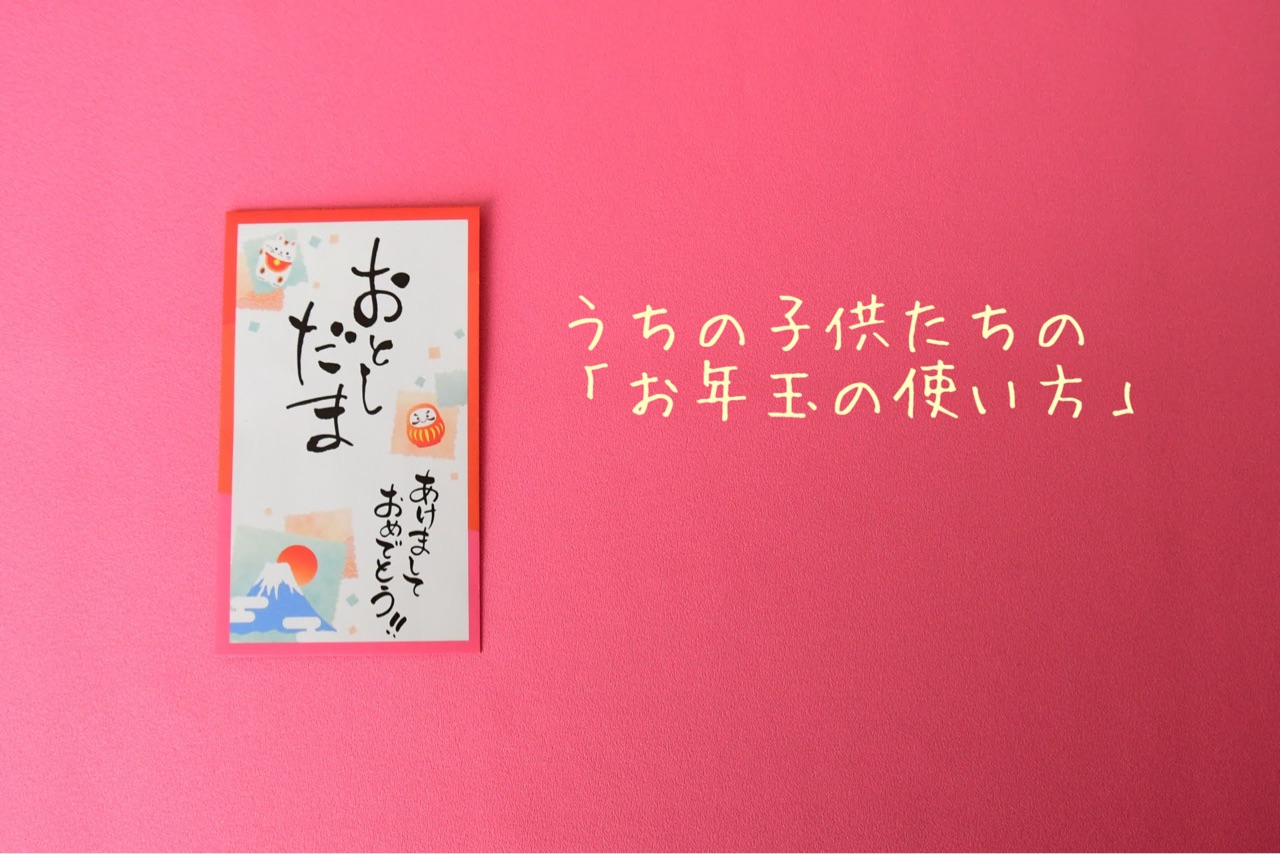 おとし
だま
あけまして
おめでとう!!
うちの子供たちの
「お年玉の使い方」